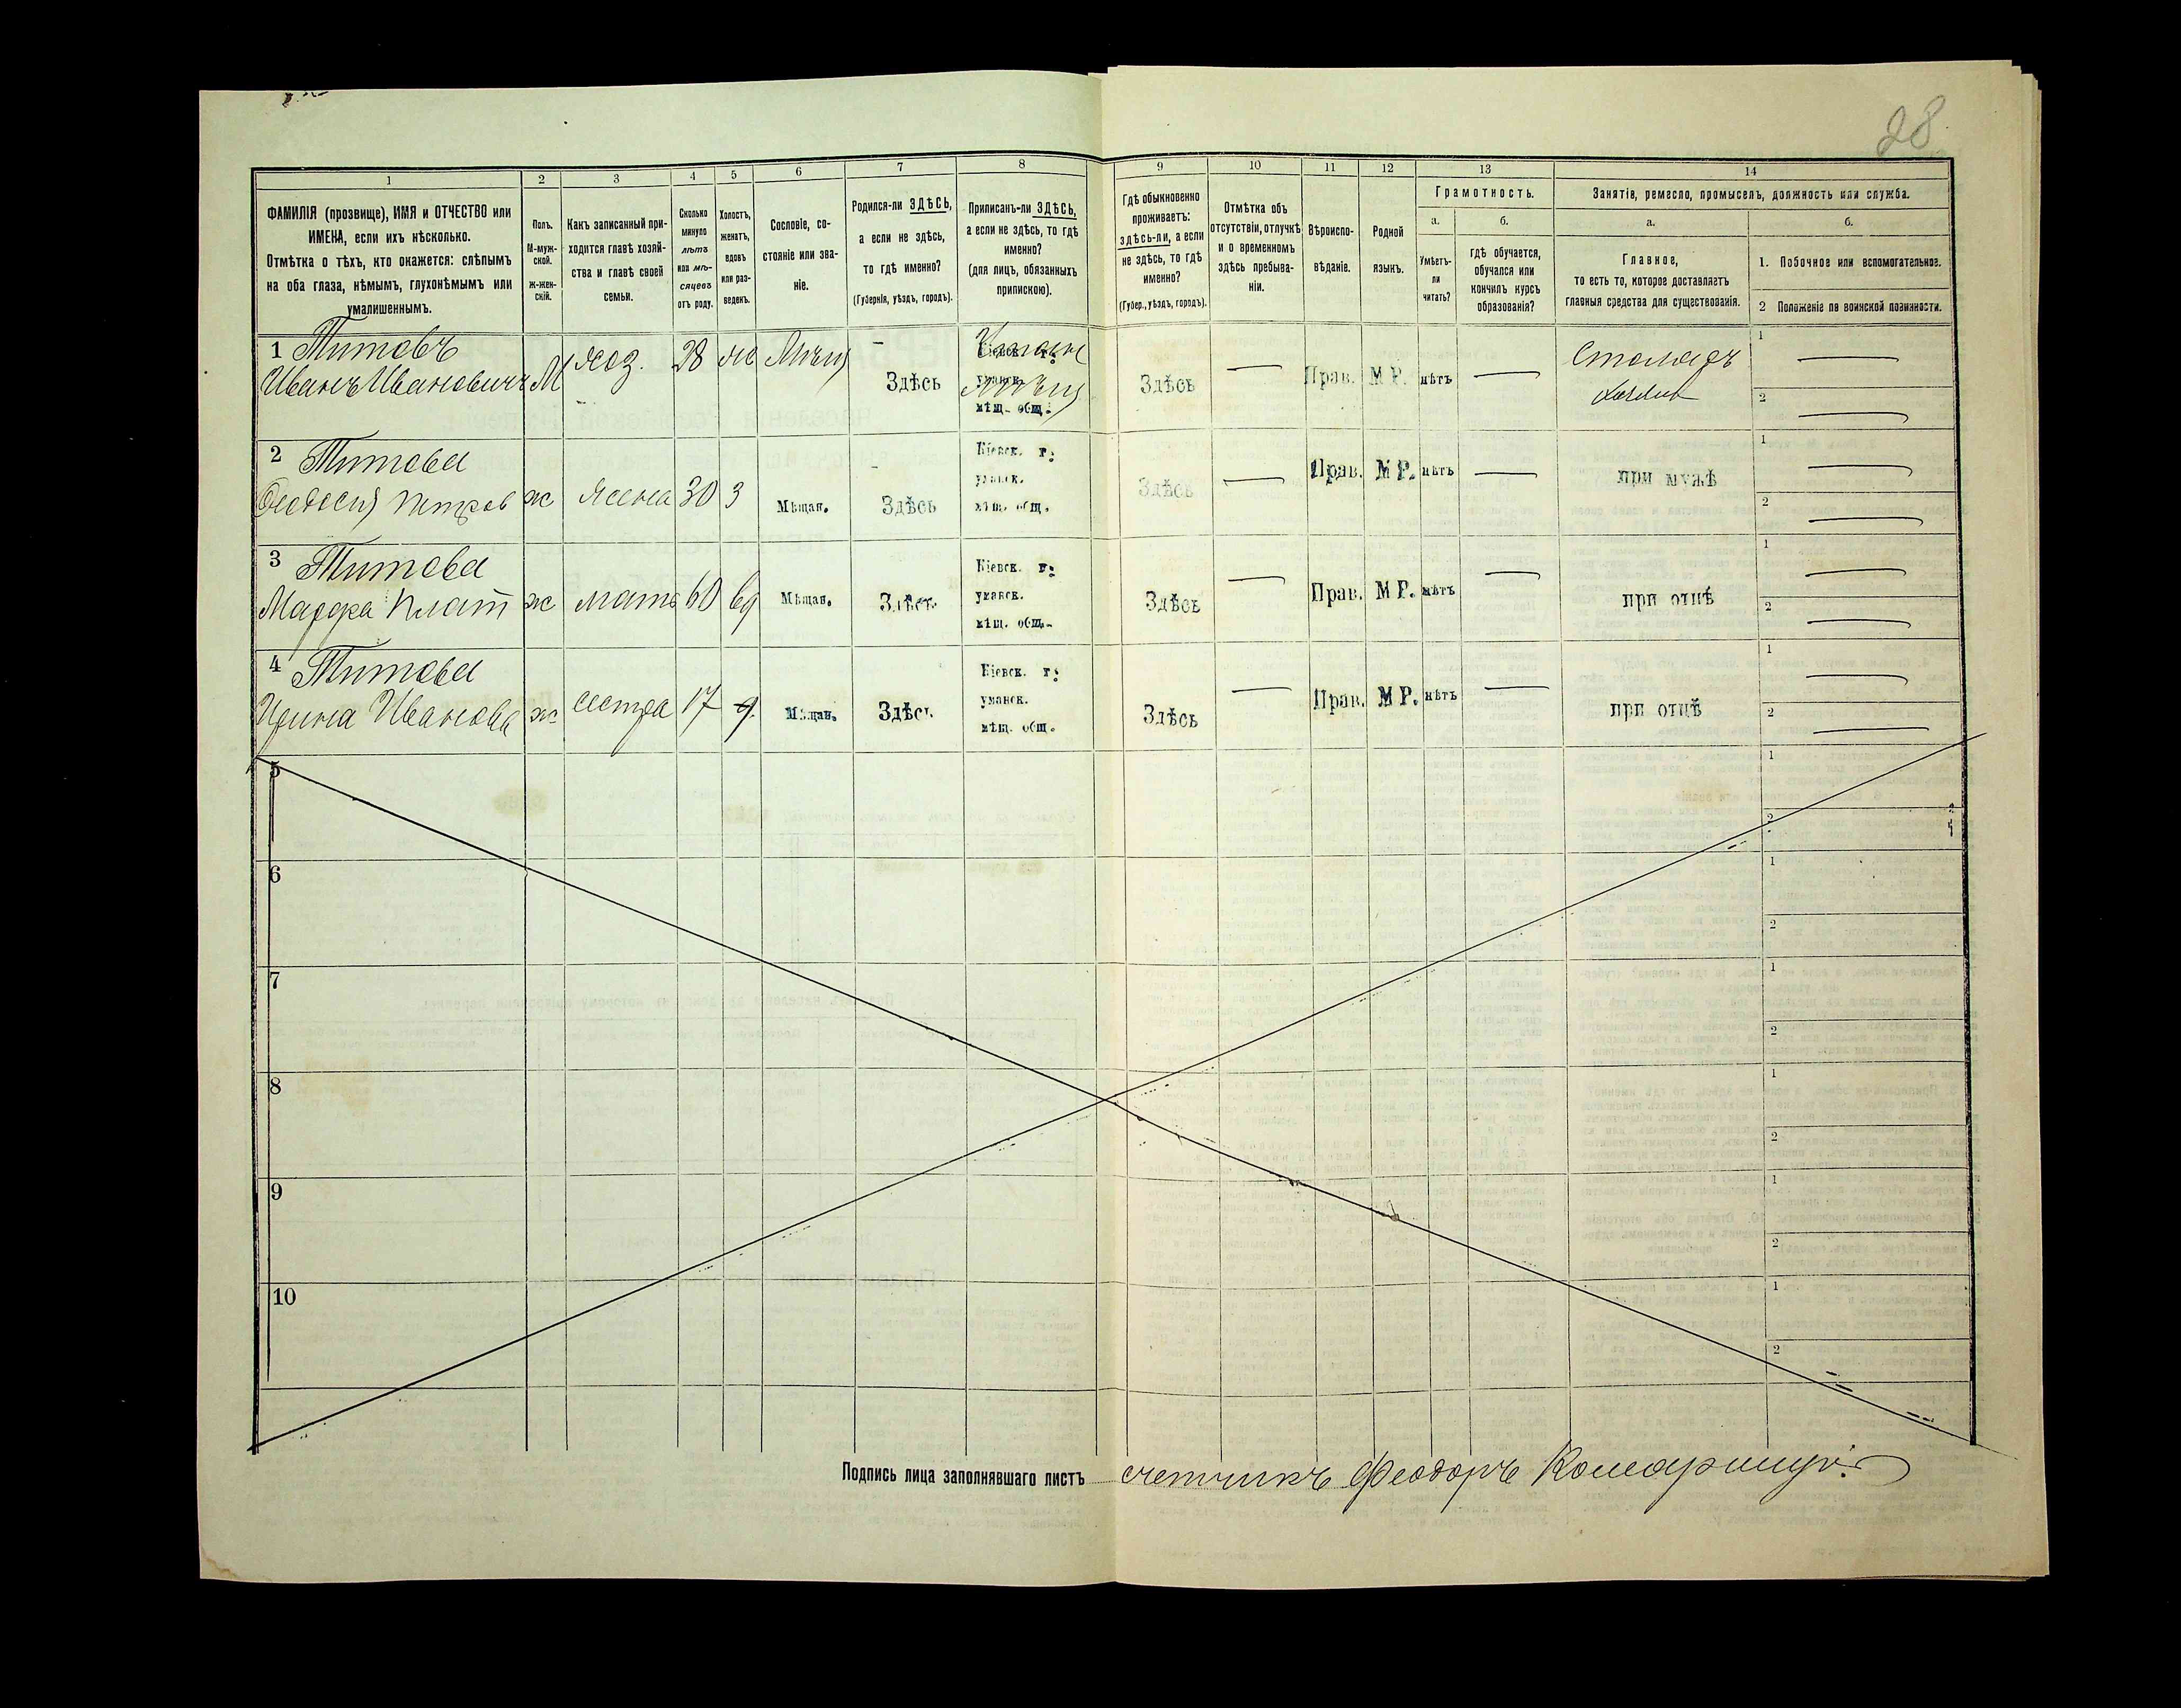 28
1 2 3 4 5 6 7 8 9 10 11 12 13 14
ФАМИЛІЯ (прозвище), ИМЯ и ОТЧЕСТВО или
ИМЕНА, если ихъ нѣсколько.
Отмѣтка о тѣхъ, кто окажется: слѣпымъ
на оба глаза, нѣмымъ, глухонѣмымъ или
умалишеннымъ.
Полъ.
М-муж-
ской.
Ж-жен-
скій.
Какъ записанный при-
ходится главѣ хозяй-
ства и главѣ своей
семьи.
Сколько
минуло
лѣтъ
или мѣ-
сяцевъ
отъ роду.
Холостъ,
женатъ,
вдовъ
или раз-
веденъ.
Сословіе, со-
стояніе или зва-
ніе.
Родился-ли ЗДѢСЬ,
а если не здѣсь,
то гдѣ именно?
(Губернія, уѣздъ, городъ).
Приписанъ-ли ЗДѢСЬ,
а если не здѣсь, то гдѣ
именно?
(для лицъ, обязанныхъ
припискою).
Гдѣ обыкновенно
проживаетъ:
здѣсь-ли, а если
не здѣсь, то гдѣ
именно?
(Губер., уѣздъ, городъ).
Отмѣтка объ
отсутствіи, отлучкѣ
и о временномъ
здѣсь пребыва-
ніи.
Вѣроиспо-
вѣданіе.
Родной
языкъ.
Грамотность.
а.
Умѣетъ-
ли
читать?
б.
гдѣ обучается,
обучался или
кончилъ курсъ
образованія?
Занятія, ремесло, промыселъ, должность или служба.
а.
Главное,
то есть то, которое доставляетъ
главныя средства для существованія.
б.
1. Побочное или вспомогательное.
2 Положеніе по воинской повинности.
1 Титовъ
Иванъ Ивановичъ М хоз. 28 Здѣсь Кіевск. г. мѣщ. общ. Здѣсь — Прав. М Р. нѣтъ — Столяръ 1 — 2 —
2 Титова
Феодосія Петров ж жена 30 з Мѣщан. Здѣсь Кіевск. г. уманск. мѣщ. общ. Здѣсь — Прав. М Р. нѣтъ — при мужѣ 1 — 2 —
3 Титова
Марфа Плат ж мать 60 вд Мѣщан. Здѣсь Кіевск. г. уманск. мѣщ. общ. Здѣсь — Прав. М Р. нѣтъ — при отцѣ 1 — 2 —
4 Титова
Ирина Иванова ж сестра 17 д. Мѣщан. Здѣсь Кіевск. г. уманск. мѣщ. общ. Здѣсь — Прав. М Р. нѣтъ — при отцѣ 1 — 2 —
5 1 2
6 1 2
7 1 2
8 1 2
9 1 2
10 1 2
Подпись лица заполнявшаго листъ счетчикъ Феодоръ